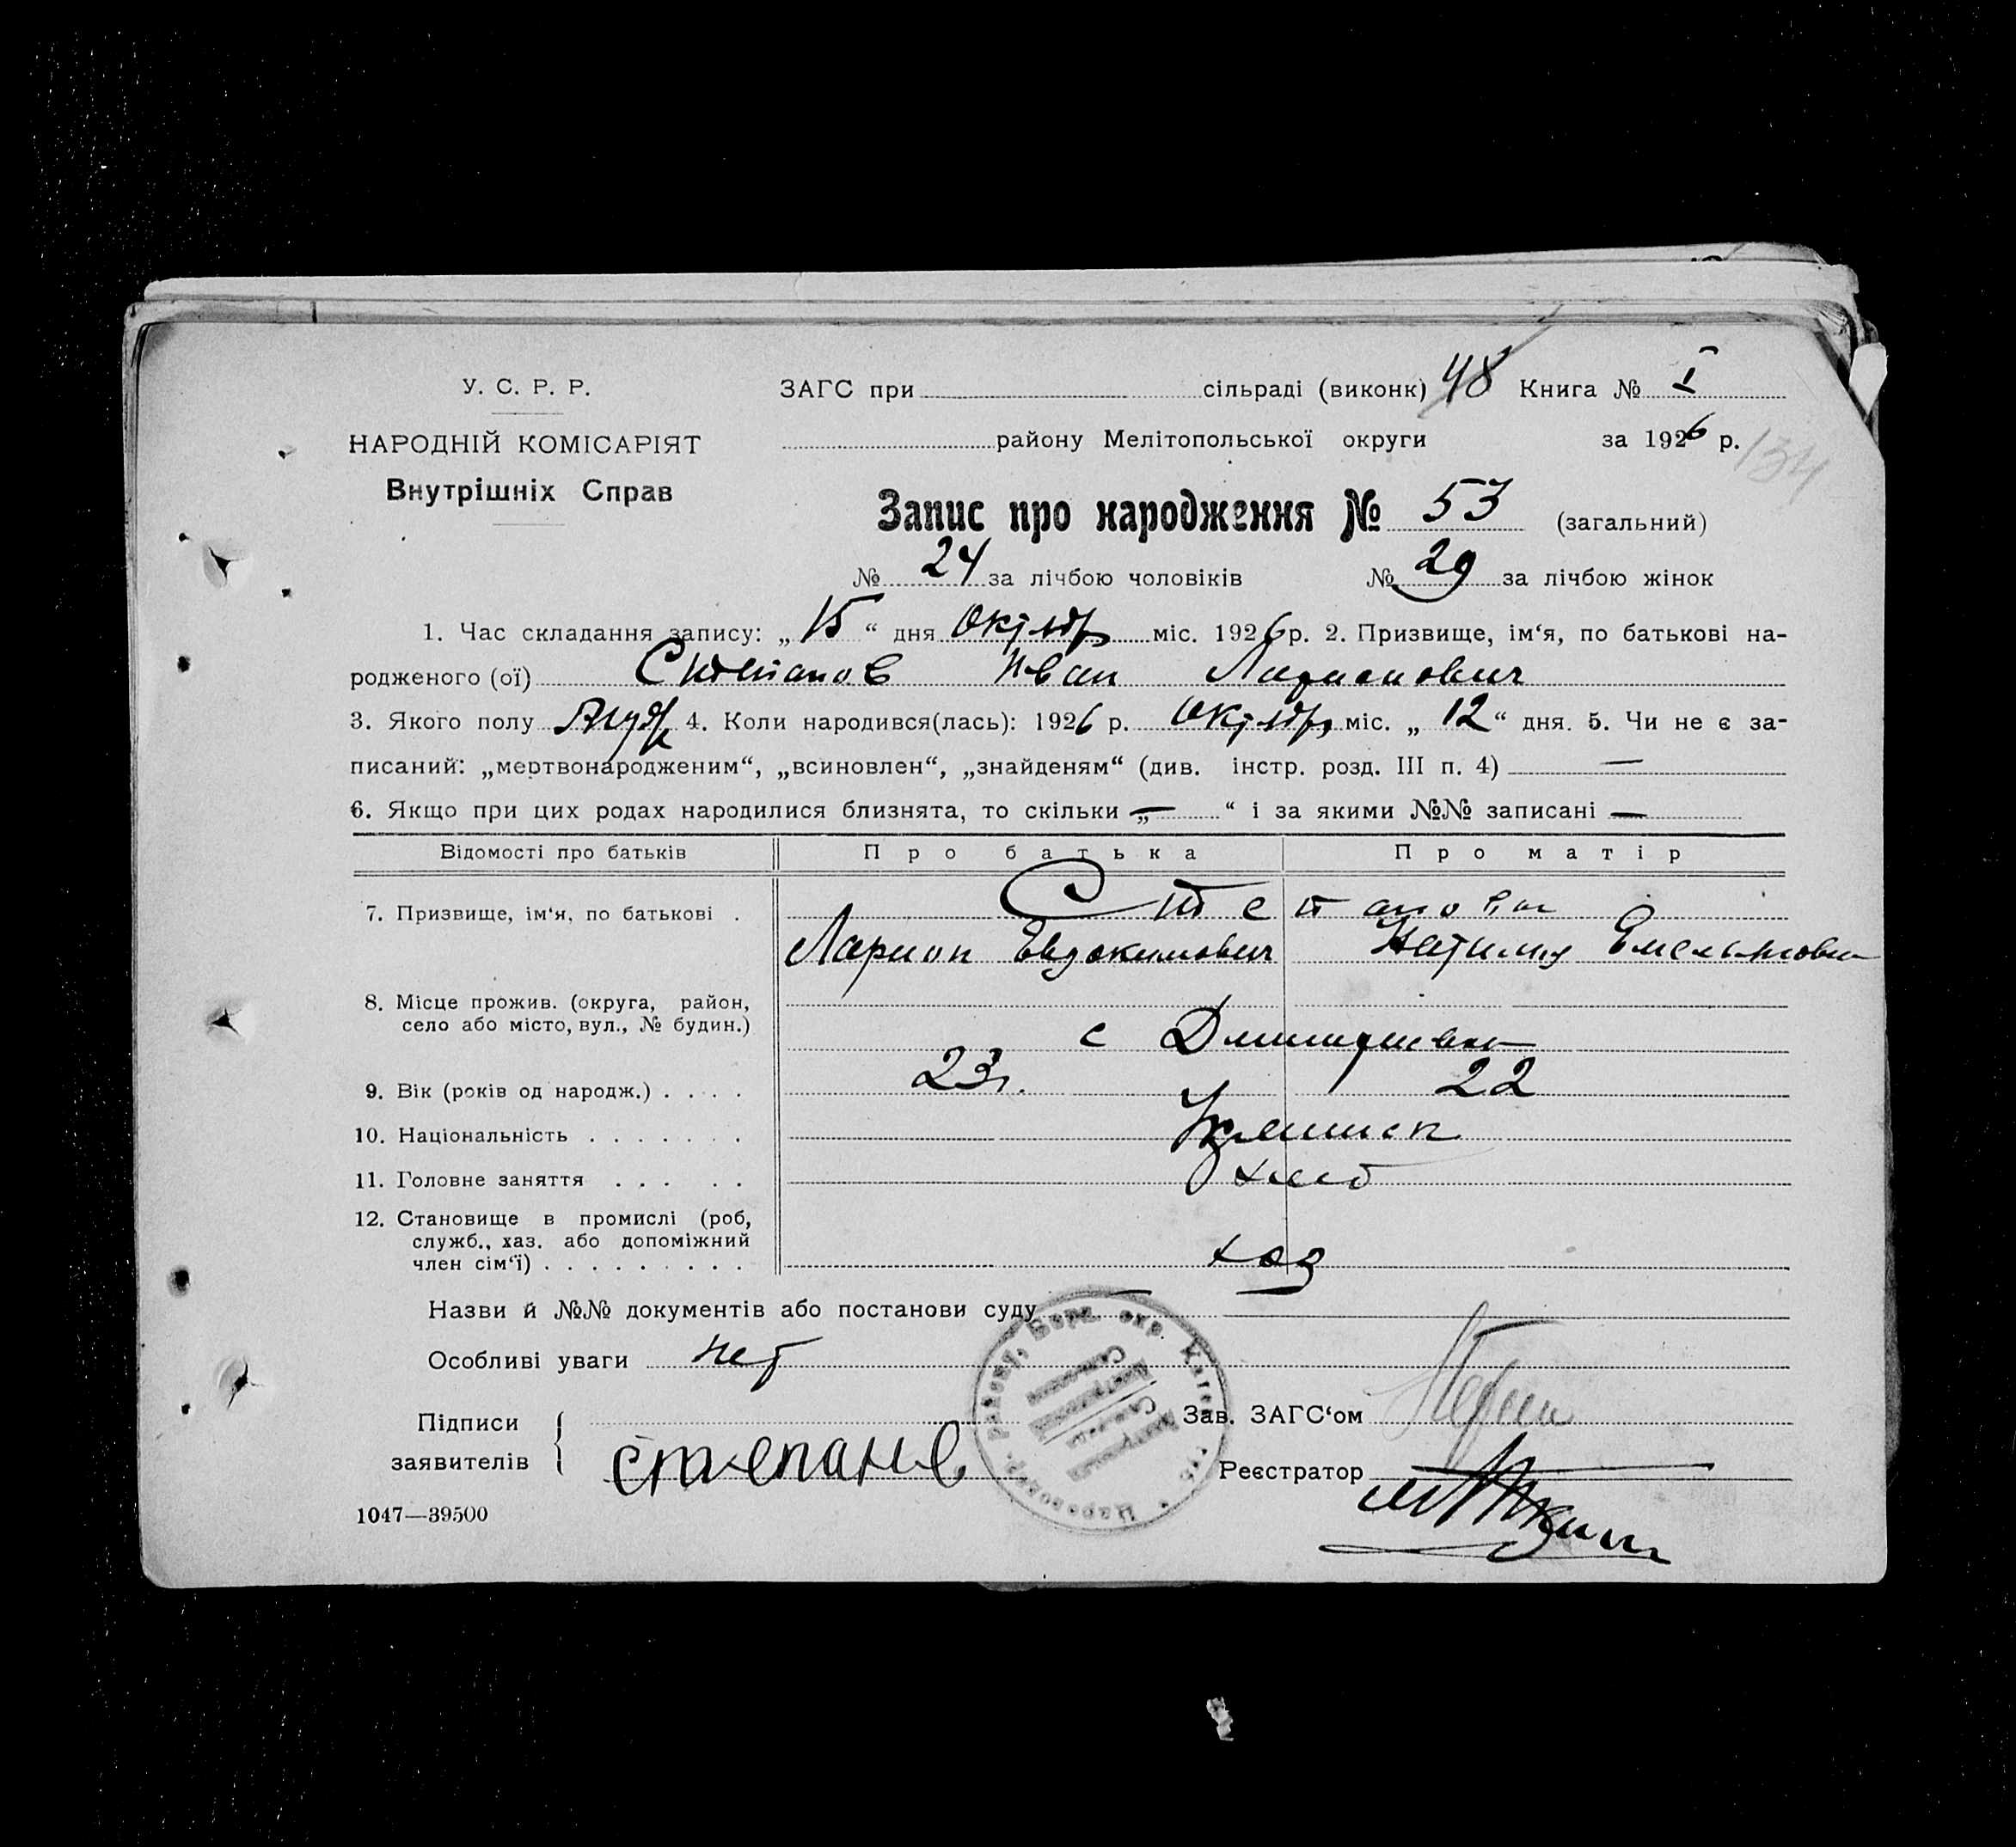 У. С. Р. Р.
НАРОДНІЙ КОМІСАРІЯТ
Внутрішніх Справ
ЗАГС при сільраді (виконк) 48 Книга № I
району Мелітопольської округи за 1926 р.
134
Запис про народження № 53 (загальний)
№ 24 за лічбою чоловіків № 29 за лічбою жінок
1. Час складання запису: „ 15 “ дня Октябр міс. 1926 р. 2. Призвище, ім‘я, по батькові на-
родженого (ої) Степанов Иван Ларионович
3. Якого полу 4. Коли народився(лась): 1926 р. Октябр міс. „ 12 “ дня. 5. Чи не є за-
писаний: „мертвонародженим“, „всиновлен“, „знайденям“ (див. інстр. розд. III п. 4) —
6. Якщо при цих родах народилися близнята, то скільки „ — “ і за якими №№ записані —
Відомості про батьків Про батька Про матір
7. Призвище, ім‘я, по батькові . Степановы
Ларион Евдокимович Емельяновна
8. Місце прожив. (округа, район,
село або місто, вул., № будин.)
с Дмитриевка
9. Вік (років од народж.) . . . . 23 г. 22
10. Національність . . . . . . .
11. Головне заняття . . . . . хлеб
12. Становище в промислі (роб,
служб., хаз. або допоміжний
член сім‘ї) . . . . . . . . . хоз
Назви й №№ документів або постанови суду —
Особливі уваги нет
Підписи
заявителів
степанов
Зав. ЗАГС‘ом
Реєстратор
1047—39500